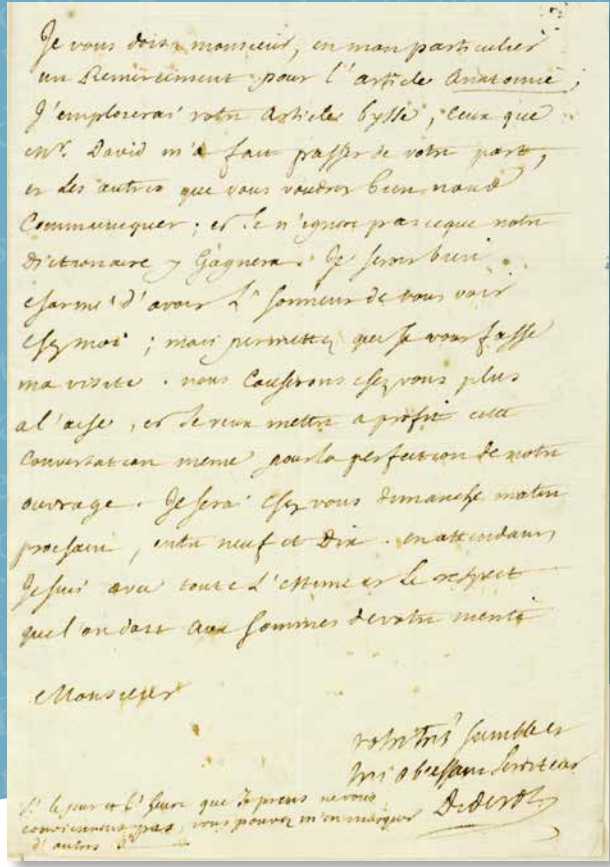 Je vous dois, monsieur, en mon particulier
un Remerciment pour l'article Anatomie;
J'emploierai votre Articles bysse, ceux que
Mr. David m'a fait passer de votre part,
et les autres que vous voudrez bien nous
Communiquer; et Je n'ignore pas ce que notre
Dictionaire y Gagnera. Je serois bien
charmé d'avoir L'honneur de vous voir
chez moi; mais permettez que Je vous fasse
ma visite. nous Causerons chez vous plus
a l'aise, et Je veux mettre a profit cette
Conversation meme pour la perfection de notre
ouvrage. Je serai chez vous dimanche matin
prochain, entre neuf et Dix. en attendant,
Je suis avec toute L'estime et Le respect
que l'on doit aux hommes de votre merite
Monsieur
votre très humble et
très obeissant serviteur
Diderot
Si le jour et l'heure que Je prens ne vous
conviennent pas, vous pouvez m'en marquer
d'autres